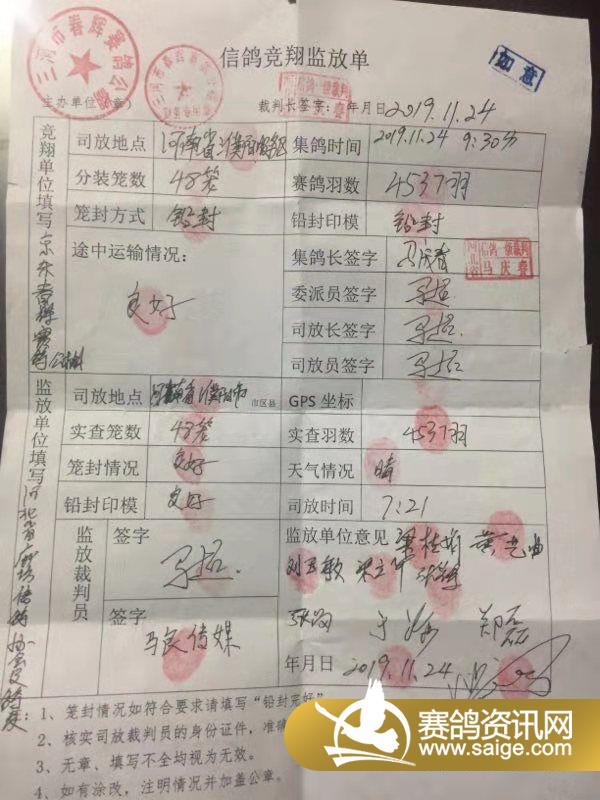 信鸽竞翔监放单
如意
三河市春辉赛鸽公棚
主办单位（章）
裁判长签字：
年月日 2019.11.24
竞翔单位填写
司放地点 河南省濮阳
集鸽时间 2019.11.24 9:30分
分装笼数 48笼
赛鸽羽数 4537羽
笼封方式 铅封
铅封印模 铅封
途中运输情况：
良好
集鸽长签字 马庆春
信鸽一级裁判
河北省 马庆春
委派员签字
司放长签字
司放员签字
监放单位填写
司放地点 河南省濮阳市 市区县
GPS 坐标
实查笼数 48笼
实查羽数 4537羽
笼封情况 良好
天气情况 晴
铅封印模 良好
司放时间 7:21
监放裁判员
签字
签字
马良传媒
监放单位意见
郑磊
年月日 2019.11.24
1、笼封情况如符合要求请填写“铅封完好”
2、核实司放裁判员的身份证件，准确
3、无章、填写不全均视为无效。
4、如有涂改，注明情况并加盖公章。
赛鸽资讯网
www.saige.com